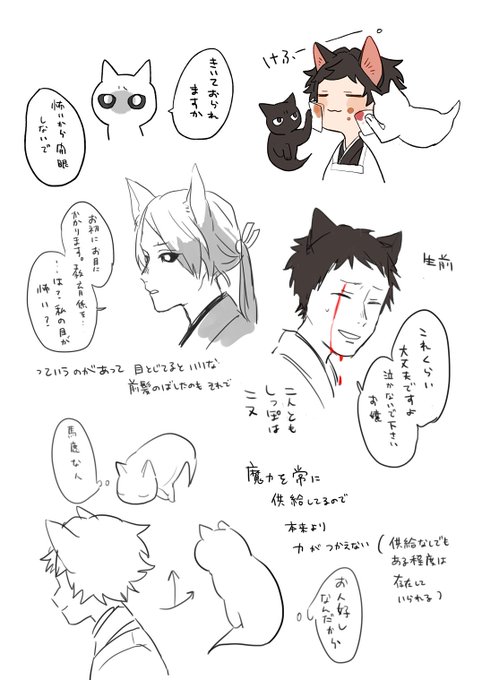 けふー
きいておられ
ますか
怖いから開眼
しないで
お初にお目に
かかります。教育係を…
…は？私の目が
怖い？
生前
これくらい
大丈夫ですよ
泣かないで下さい
お嬢
っていうのがあって 目とじてると いいな
前髪のばしたのも それで
二人とも
しっぽは
ニヌ
馬鹿な人
魔力を常に
供給してるので
本来より
力がつかえない
(供給なしでも
ある程度は
存在して
いられる)
お人好し
なんだから